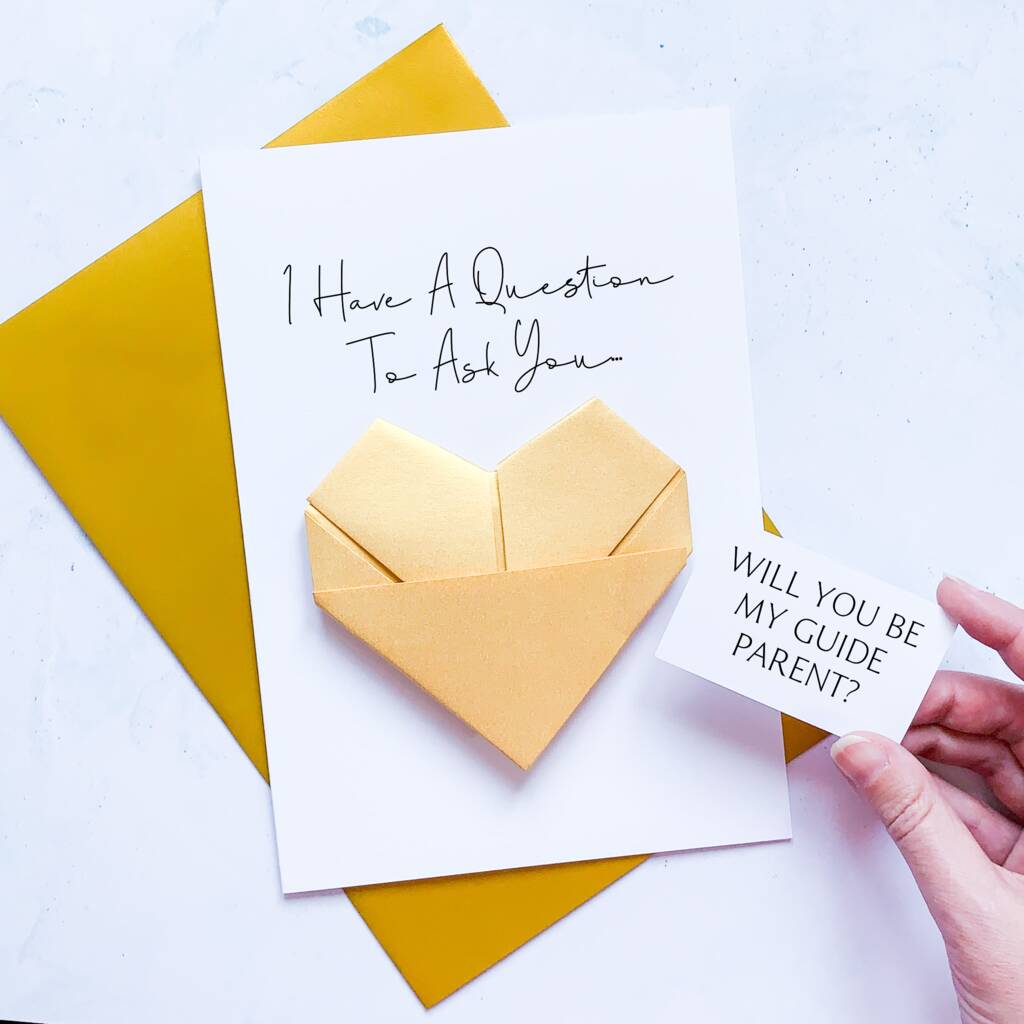 I Have A Question
To Ask You...
WILL YOU BE
MY GUIDE
PARENT?